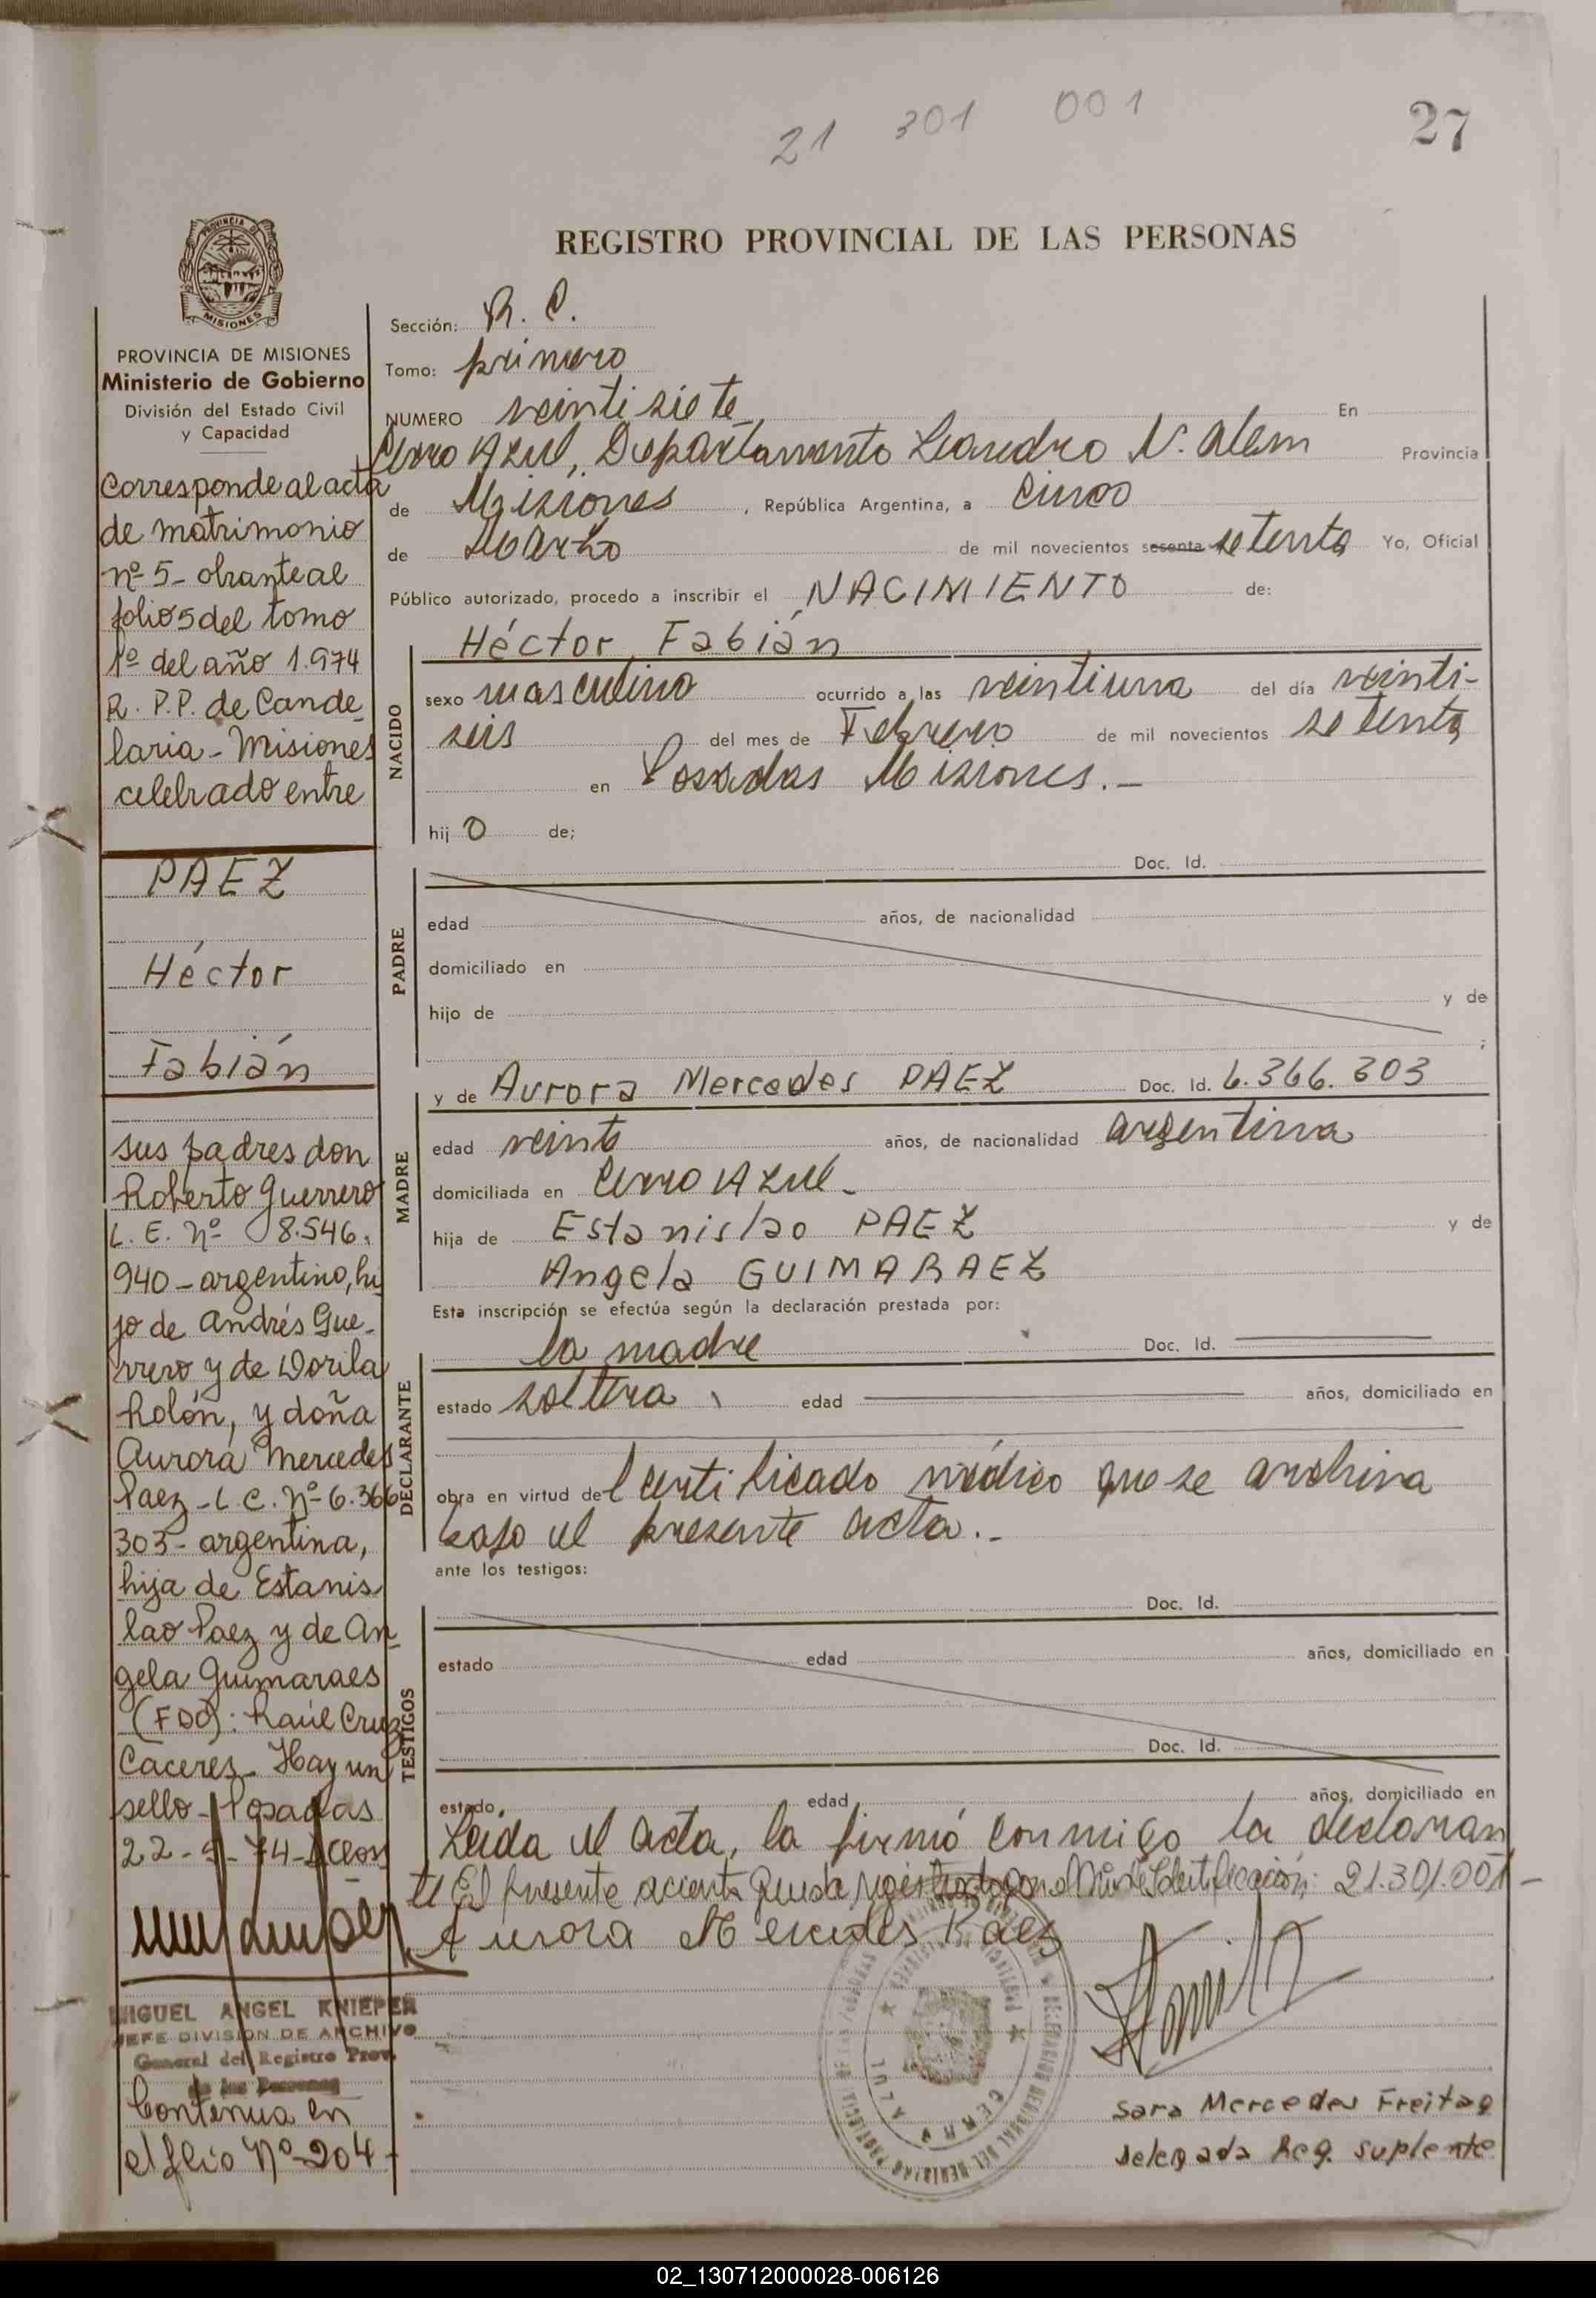 21 301 001
27
REGISTRO PROVINCIAL DE LAS PERSONAS
PROVINCIA DE
MISIONES
PROVINCIA DE MISIONES
Ministerio de Gobierno
División del Estado Civil
y Capacidad
Corresponde al acta
de matrimonio
nº 5 - obrante al
folio 5 del tomo
1º del año 1.974
R. P.P. de Cande_
laria - Misiones
celebrado entre
PAEZ
Héctor
Fabián
sus padres don
Roberto Guerrero
L. E. Nº 8.546.
940 - argentino, hi
jo de Andrés Gue_
rrero y de Dorila
Rolón, y doña
Aurora Mercedes
Paez - L. C. Nº 6.366
303 - argentina,
hija de Estanis
lao Paez y de An_
gela Guimaraes
(FDO): Raúl Cruz
Caceres - Hay un
sello - Posadas
MIGUEL ANGEL KNIEPER
JEFE DIVISION DE ARCHIVO
General del Registro Prov.
de las Personas
Continua en
el flio Nº 204 -
Sección: R. C.
Tomo: primero
NUMERO veintisiete En
Cerro Azul, Departamento Leandro N. Alem Provincia
de Misiones, República Argentina, a cinco
de Marzo de mil novecientos sesenta setenta Yo, Oficial
Público autorizado, procedo a inscribir el NACIMIENTO de:
NACIDO
Héctor Fabián
sexo masculino ocurrido a las veintiuna del día veinti-
seis del mes de Febrero de mil novecientos setenta
en Posadas Misiones. -
hijo de;
PADRE
Doc. Id.
edad años, de nacionalidad
domiciliado en
hijo de y de
;
MADRE
y de Aurora Mercedes PAEZ Doc. Id. 6.366.303
edad veinte años, de nacionalidad argentina
domiciliada en Cerro Azul -
hija de Estanislao PAEZ y de
Angela GUIMARAEZ
Esta inscripción se efectúa según la declaración prestada por:
DECLARANTE
la madre Doc. Id.
estado soltera, edad años, domiciliado en
obra en virtud del certificado médico que se archiva
bajo el presente acta. -
ante los testigos:
TESTIGOS
Doc. Id.
estado edad años, domiciliado en
Doc. Id.
estado edad años, domiciliado en
Leída el acta, la firmó conmigo la declaran
te El presente queda registrado con el Nº de Identificación: 21.301.001 -
Aurora Mercedes Paez
CERRO AZUL
Sara Mercedes Freitag
delegada Reg. suplente
02_130712000028-006126